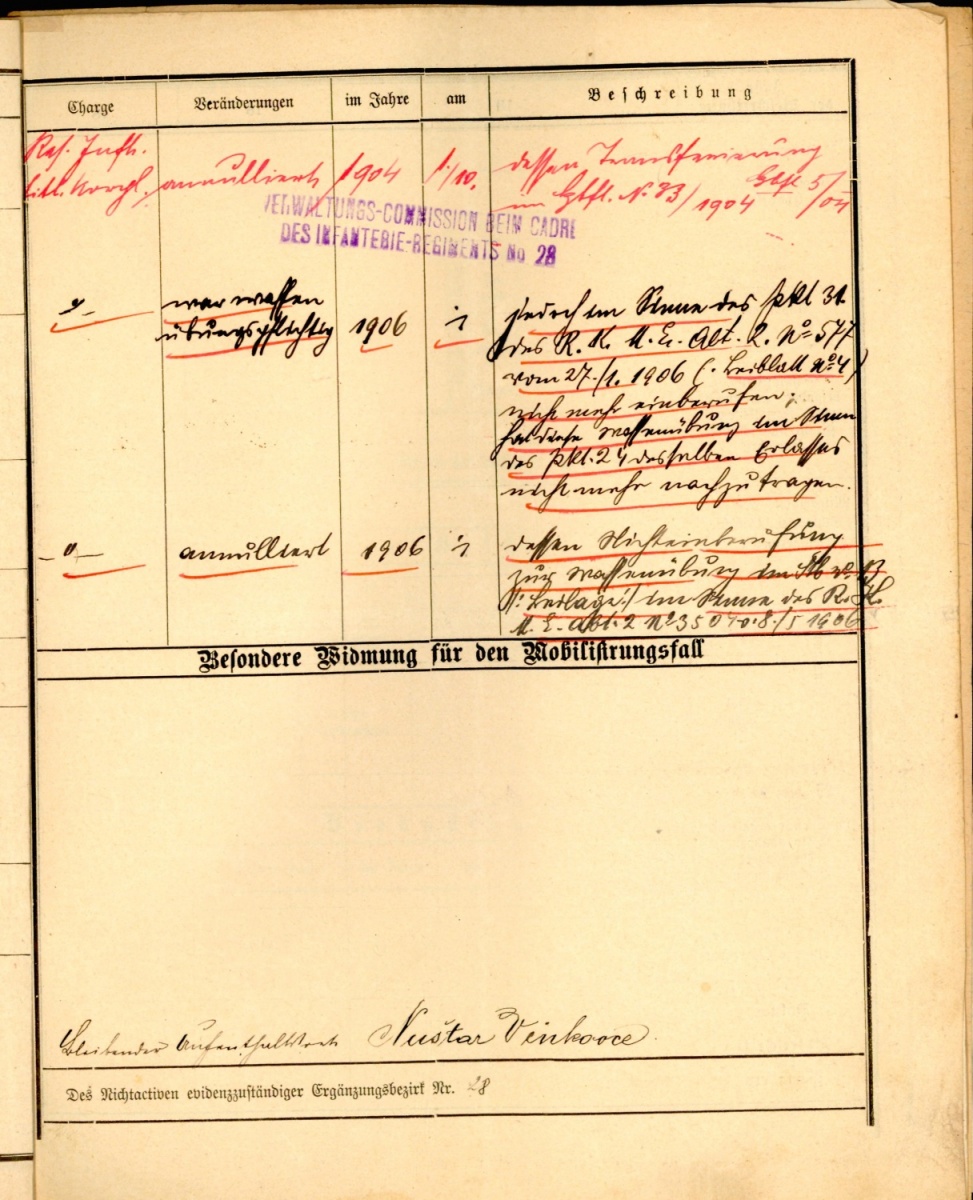 Charge Veränderungen im Jahre am Beschreibung
Res. Inft.
tit. annulliert 1904 1./10. dessen Transferierung
im Gbft. N. 33/1904 Gbft 5/04
VERWALTUNGS-COMMISSION BEIM CADRE
DES INFANTERIE-REGIMENTS No 28
war waffen
übungspflichtig 1906
jedoch im Sinne des Pkt 31
des R. K. M. E. Abt. 2. No 577
vom 27./1. 1906 (. Beiblatt No 4)
nicht mehr einberufen;
hat diese Waffenübung im Sinne
des Pkt. 24 desselben Erlasses
nicht mehr nachzutragen.
annulliert 1906
dessen Nichteinberufung
zur Waffenübung im
/: Beilage :/ im Sinne des R. K.
M. E. Abt. 2 No 3504 v. 8./5 1906
Besondere Widmung für den Mobilisirungsfall
Bleibender Aufenthaltsort Nuštar Vinkovce
Des Nichtactiven evidenzzuständiger Ergänzungsbezirk Nr. 28